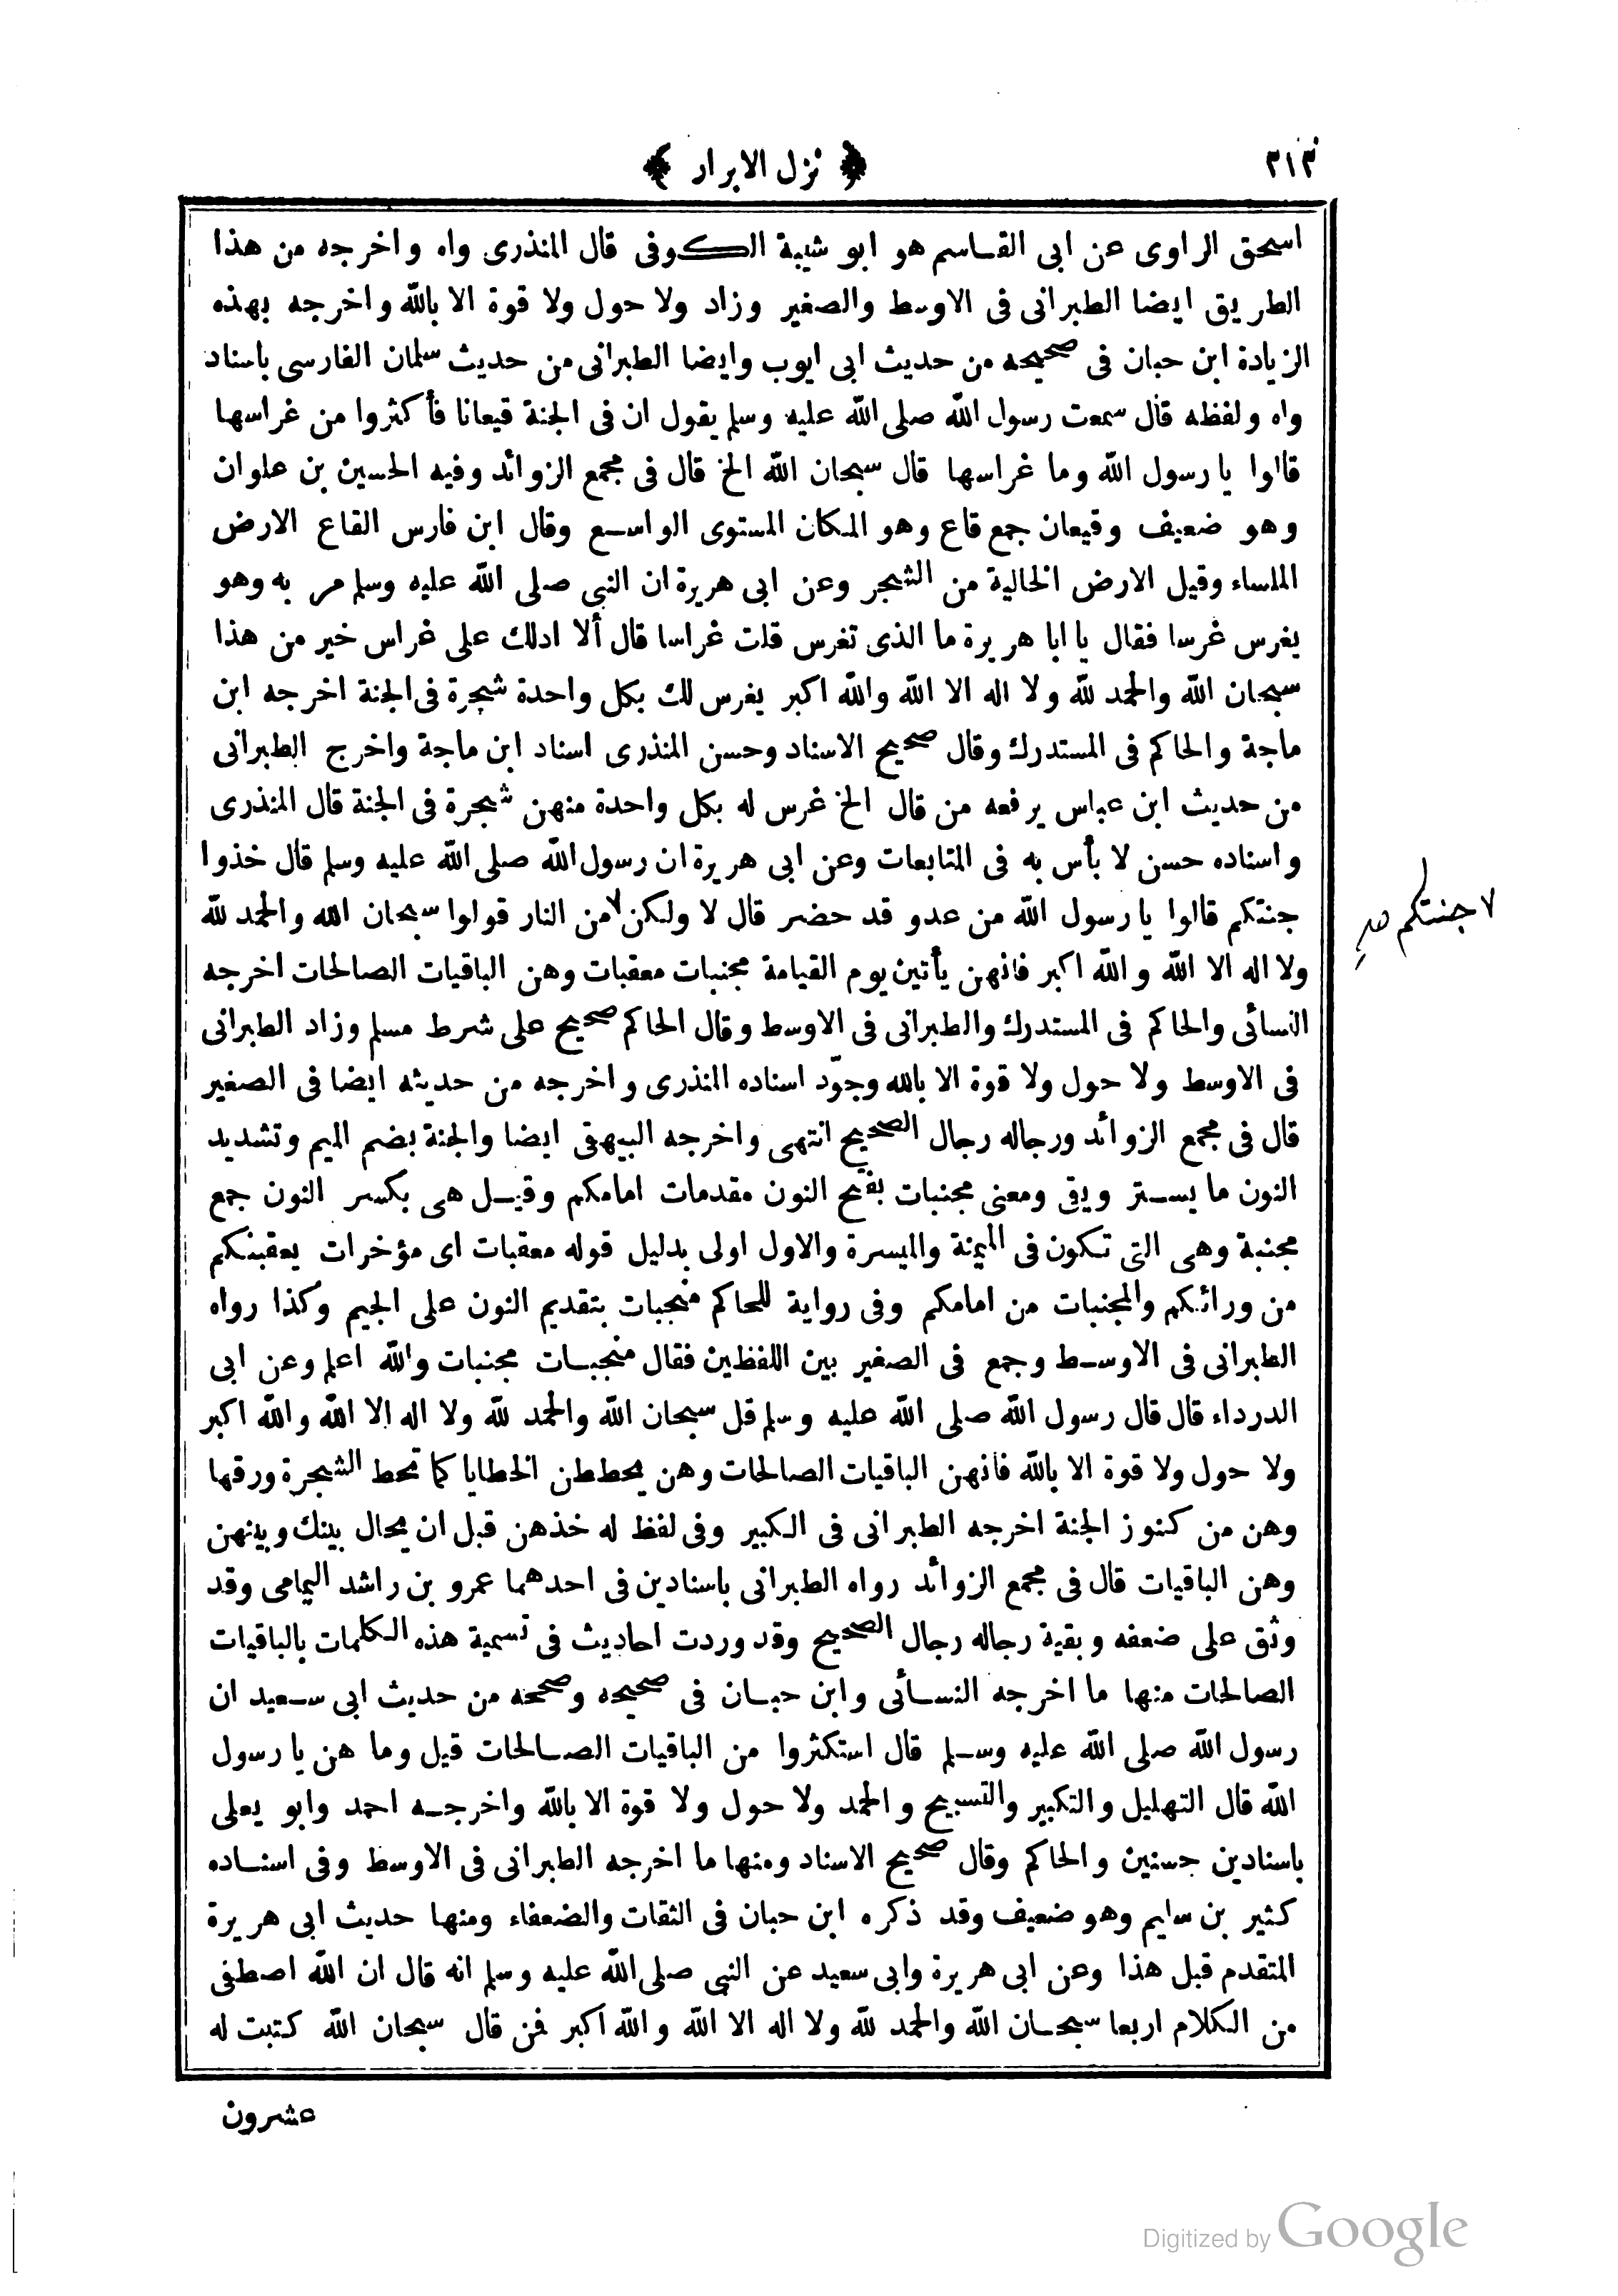 ٢١٣
﴿ نزل الابرار ﴾
اسحق الراوى عن ابى القاسم هو ابو شيبة الكوفى قال المنذرى واه واخرجه من هذا
الطريق ايضا الطبرانى فى الاوسط والصغير وزاد ولا حول ولا قوة الا بالله واخرجه بهذه
الزيادة ابن حبان فى صحيحه من حديث ابى ايوب وايضا الطبرانى من حديث سلمان الفارسى باسناد
واه ولفظه قال سمعت رسول الله صلى الله عليه وسلم يقول ان فى الجنة قيعانا فأكثروا من غراسها
قالوا يا رسول الله وما غراسها قال سبحان الله الخ قال فى مجمع الزوائد وفيه الحسين بن علوان
وهو ضعيف وقيعان جمع قاع وهو المكان المستوى الواسع وقال ابن فارس القاع الارض
الملساء وقيل الارض الخالية من الشجر وعن ابى هريرة ان النبى صلى الله عليه وسلم مر به وهو
يغرس غرسا فقال يا ابا هريرة ما الذى تغرس قلت غراسا قال ألا ادلك على غراس خير من هذا
سبحان الله والحمد لله ولا اله الا الله والله اكبر يغرس لك بكل واحدة شجرة فى الجنة اخرجه ابن
ماجة والحاكم فى المستدرك وقال صحيح الاسناد وحسن المنذرى اسناد ابن ماجة واخرج الطبرانى
من حديث ابن عباس يرفعه من قال الخ غرس له بكل واحدة منهن شجرة فى الجنة قال المنذرى
واسناده حسن لا بأس به فى المتابعات وعن ابى هريرة ان رسول الله صلى الله عليه وسلم قال خذوا
جنتكم قالوا يا رسول الله من عدو قد حضر قال لا ولكن ٧ من النار قولوا سبحان الله والحمد لله
٧ جنتكم صح
ولا اله الا الله والله اكبر فانهن يأتين يوم القيامة مجنبات معقبات وهن الباقيات الصالحات اخرجه
النسائى والحاكم فى المستدرك والطبرانى فى الاوسط وقال الحاكم صحيح على شرط مسلم وزاد الطبرانى
فى الاوسط ولا حول ولا قوة الا بالله وجوّد اسناده المنذرى واخرجه من حديثه ايضا فى الصغير
قال فى مجمع الزوائد ورجاله رجال الصحيح انتهى واخرجه البيهقى ايضا والجنة بضم الميم وتشديد
النون ما يستر ويقى ومعنى مجنبات بفتح النون مقدمات امامكم وقيل هى بكسر النون جمع
مجنبة وهى التى تكون فى الميمنة والميسرة والاول اولى بدليل قوله معقبات اى مؤخرات يعقبنكم
من ورائكم والمجنبات من امامكم وفى رواية للحاكم منجبات بتقديم النون على الجيم وكذا رواه
الطبرانى فى الاوسط وجمع فى الصغير بين اللفظين فقال منجبات مجنبات والله اعلم وعن ابى
الدرداء قال قال رسول الله صلى الله عليه وسلم قل سبحان الله والحمد لله ولا اله الا الله والله اكبر
ولا حول ولا قوة الا بالله فانهن الباقيات الصالحات وهن يحططن الخطايا كما تحط الشجرة ورقها
وهن من كنوز الجنة اخرجه الطبرانى فى الكبير وفى لفظ له خذهن قبل ان يحال بينك وبينهن
وهن الباقيات قال فى مجمع الزوائد رواه الطبرانى باسنادين فى احدهما عمرو بن راشد اليمامى وقد
وثق على ضعفه وبقية رجاله رجال الصحيح وقد وردت احاديث فى تسمية هذه الكلمات بالباقيات
الصالحات منها ما اخرجه النسائى وابن حبان فى صحيحه وصححه من حديث ابى سعيد ان
رسول الله صلى الله عليه وسلم قال استكثروا من الباقيات الصالحات قيل وما هن يا رسول
الله قال التهليل والتكبير والتسبيح والحمد ولا حول ولا قوة الا بالله واخرجه احمد وابو يعلى
باسنادين حسنين والحاكم وقال صحيح الاسناد ومنها ما اخرجه الطبرانى فى الاوسط وفى اسناده
كثير بن سليم وهو ضعيف وقد ذكره ابن حبان فى الثقات والضعفاء ومنها حديث ابى هريرة
المتقدم قبل هذا وعن ابى هريرة وابى سعيد عن النبى صلى الله عليه وسلم انه قال ان الله اصطفى
من الكلام اربعا سبحان الله والحمد لله ولا اله الا الله والله اكبر فمن قال سبحان الله كتبت له
عشرون
Digitized by Google